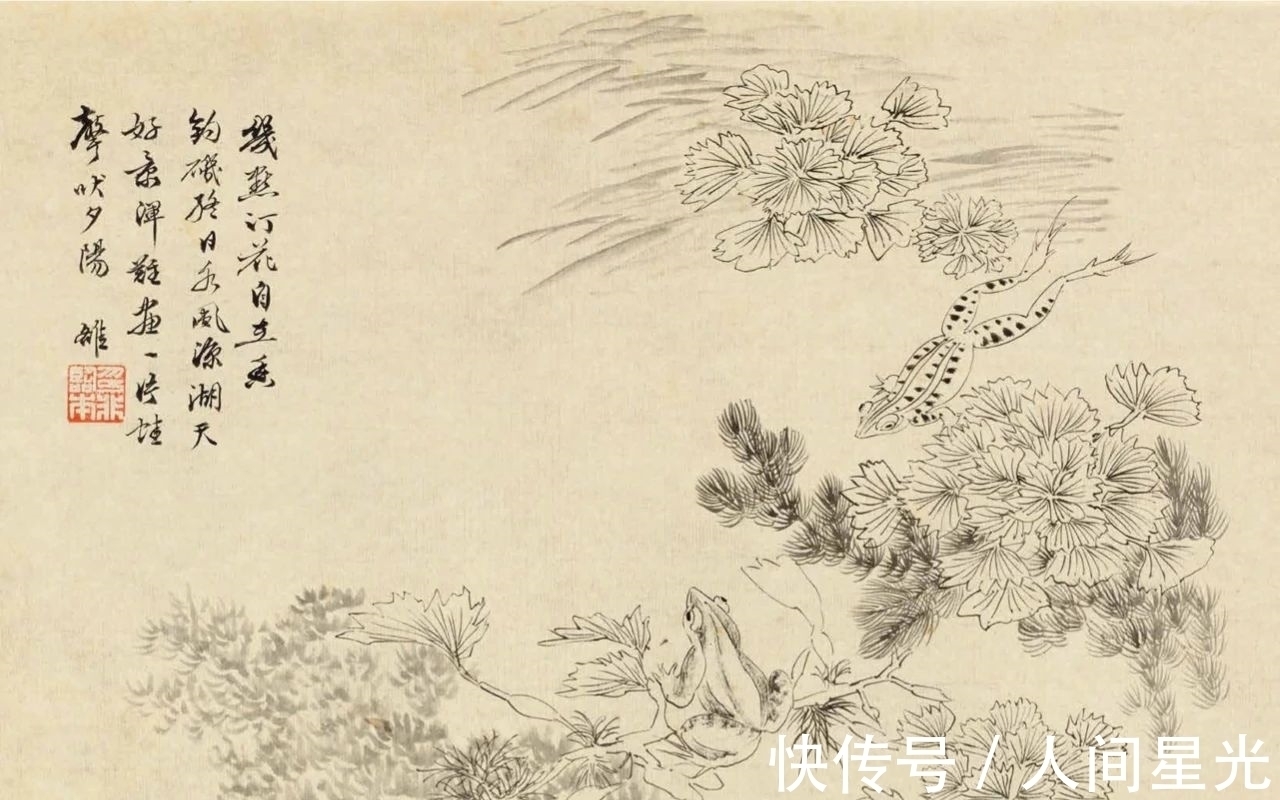 幾點汀花自在香
釣磯終日水風涼湖天
好景渾難畫一片蛙
聲吠夕陽
快传号 / 人间星光